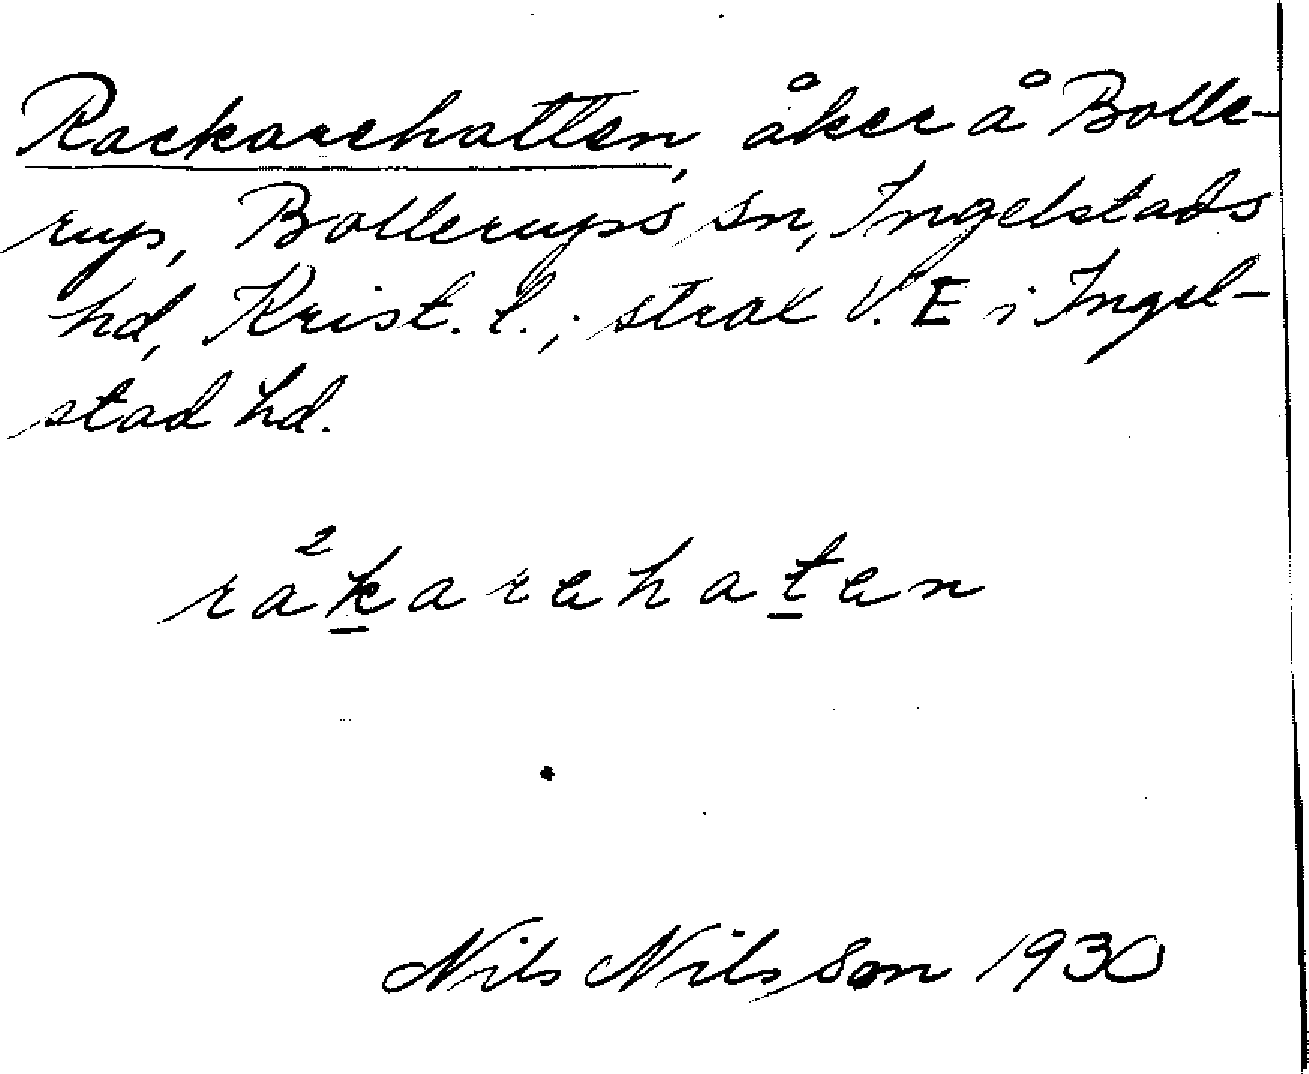 Rackarehatten, åker å Bolle-
rup, Bollerups sn, Ingelstads
hd, Krist. l.; strax V. E i Ingel-
stad hd.
ra²karehaten
Nils Nilsson 1930